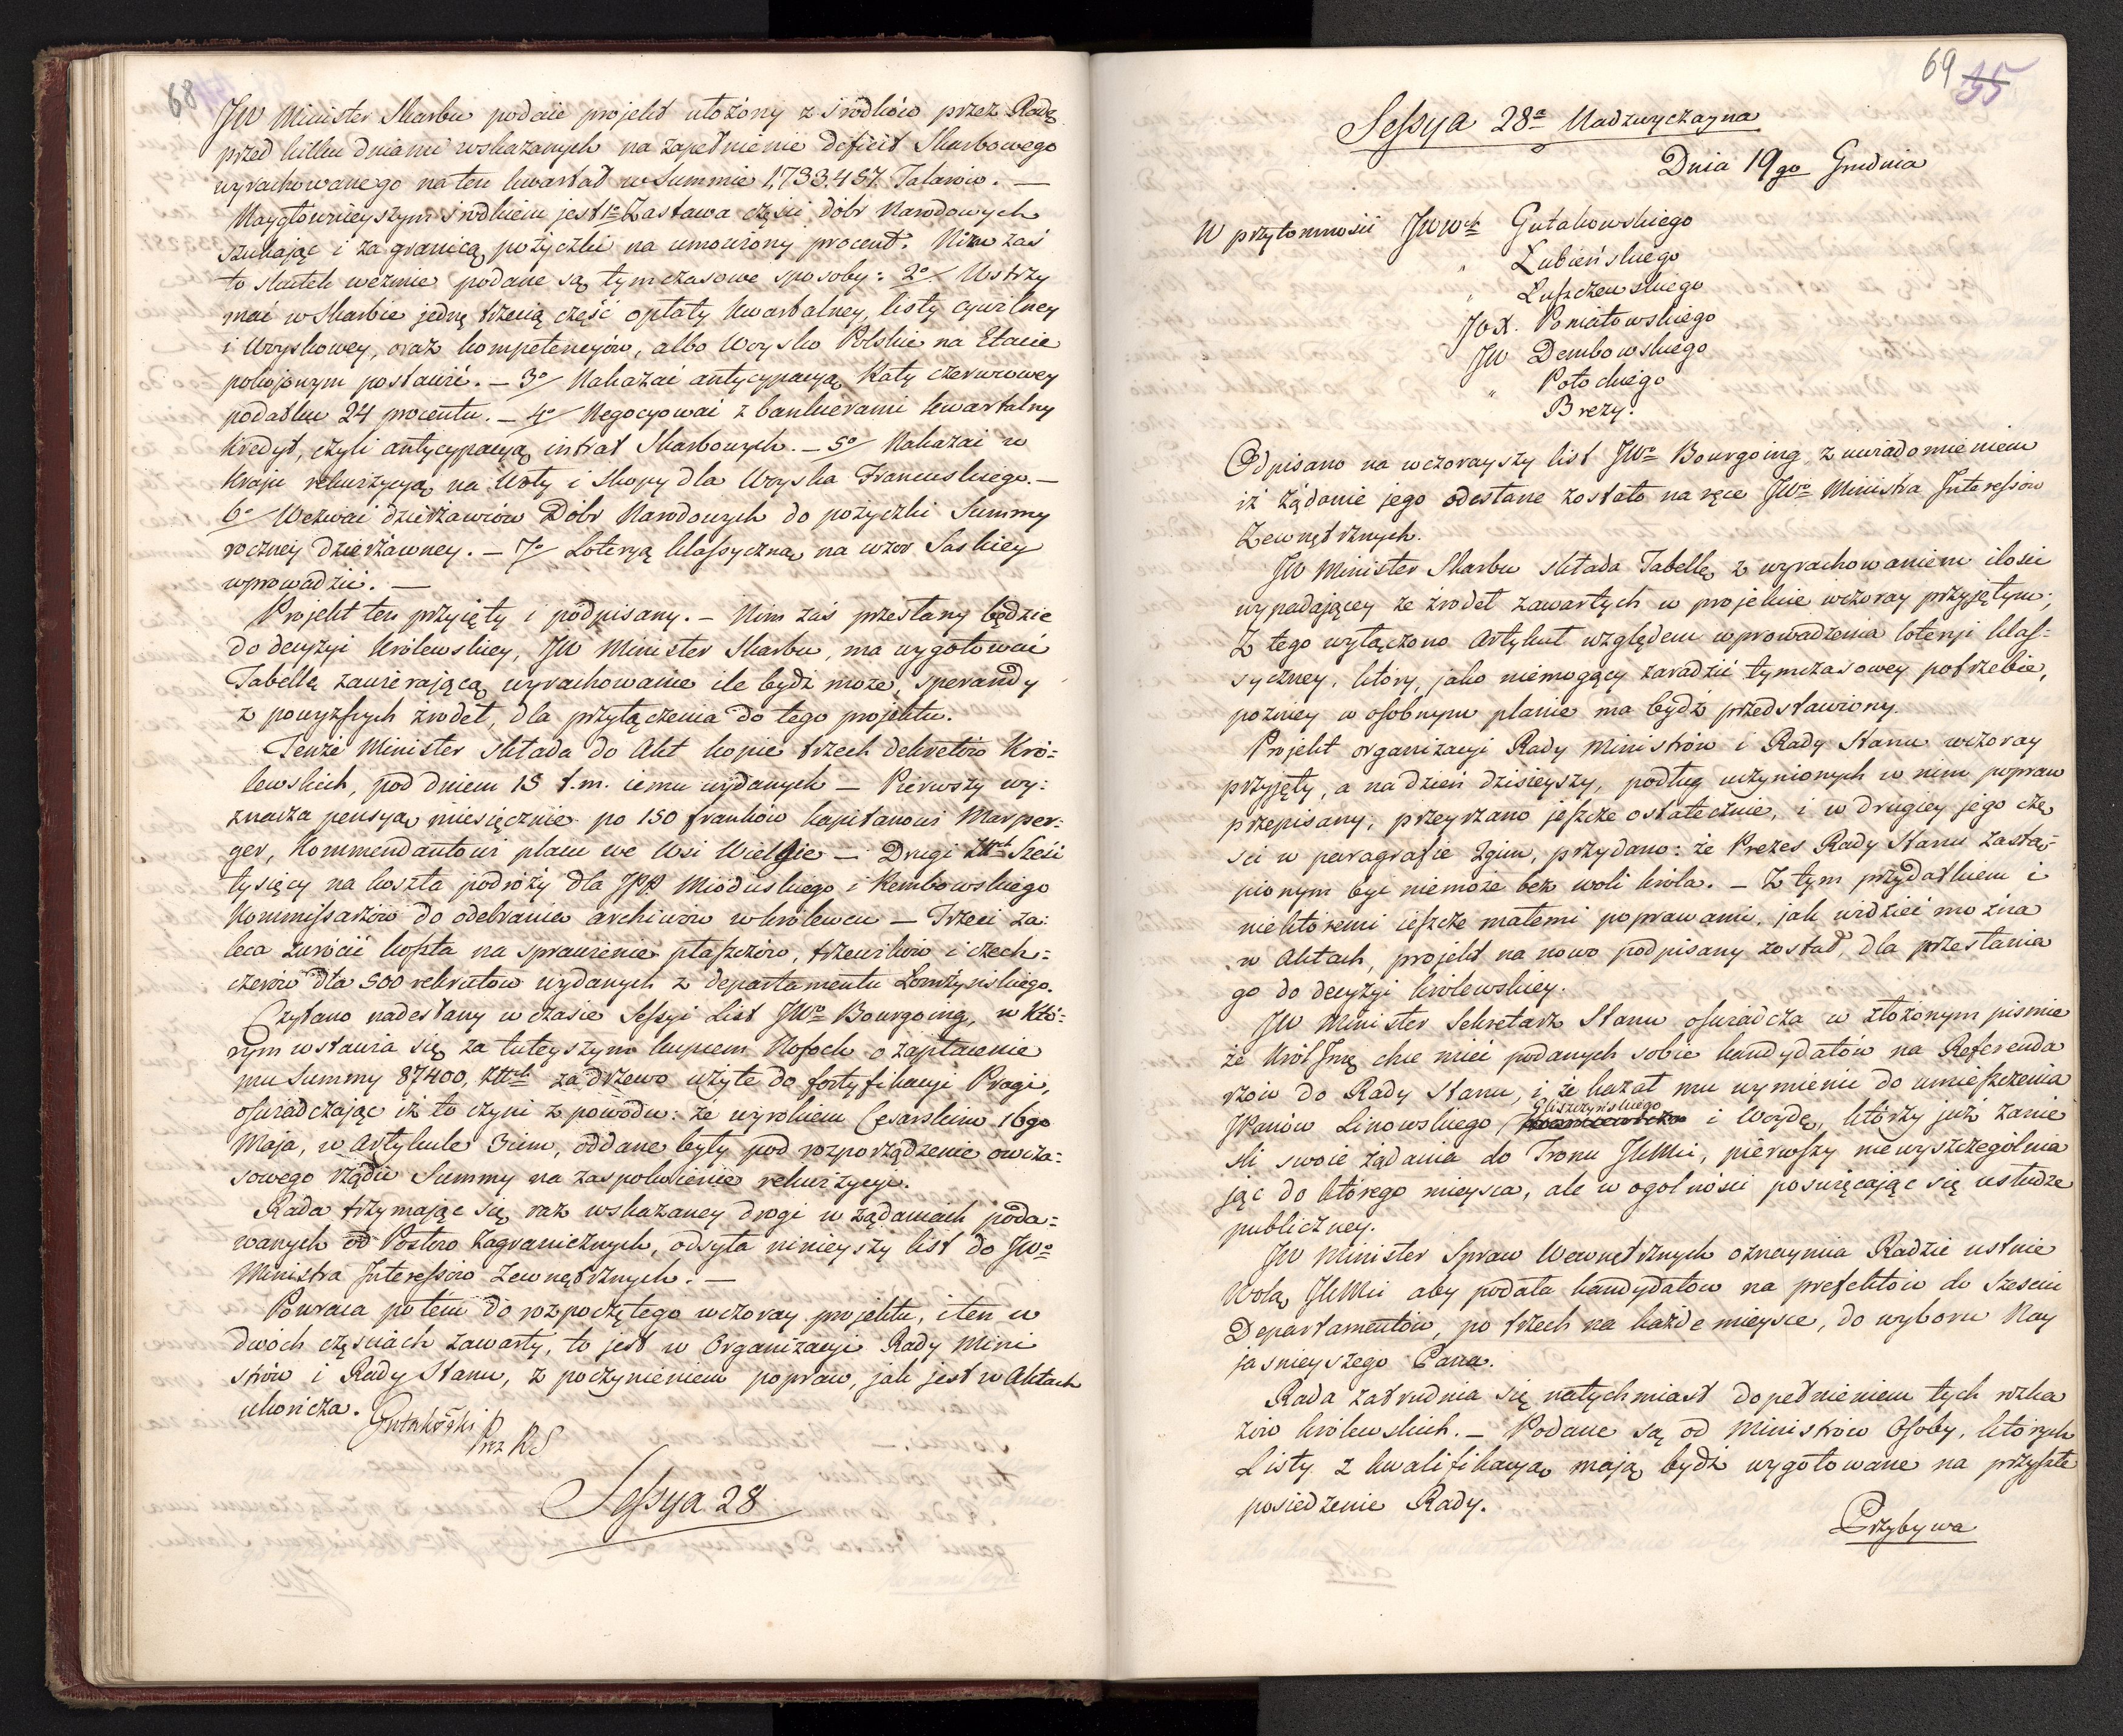 68
JW Minister Skarbu podaie projekt ułożony z środków przez Radę
przed kilku dniami wskazanych na zapełnienie deficit Skarbowego
wyrachowanego na ten kwartał w Summie 1,733.487. Talarów. —
Naygłownieyszym środkiem jest 1o Zastawa części dóbr Narodowych
szukając i za granicą pożyczki na umowiony procent. Nim zaś
to skutek weźmie podane są tymczasowe sposoby: 2o/ Wstrzy
mać w Skarbie jednę trzecią część opłaty kwartalney, listy cywilney
i Woyskowey, oraz kompetencyów, albo Woysko Polskie na Etacie
pokojowym postawić. — 3o/ Nakazać antycypacyą Raty czerwcowey
podatku 24 procentu. — 4o/ Negocyować z bankierami kwartalny
kredyt, czyli antycypacyą intrat Skarbowych. — 5o/ Nakazać w
kraju rekwizycyą na Woły i Skopy dla Woyska Francuskiego. —
6o/ Wezwać dzierżawców Dóbr Narodowych do pożyczki Summy
roczney dzierżawney. — 7o/ Loteryą klassyczną na wzor Saskiey
wprowadzić. —
Projekt ten przyięty i podpisany. — Nim zaś przesłany będzie
do decyzyi Królewskiey, JW Minister Skarbu, ma wygotować
Tabellę zawierającą wyrachowanie ile bydź może, sperandy
z powyższych źrodeł, dla przyłączenia do tego projektu.
Tenże Minister składa do Akt kopie trzech dekretów Kró=
lewskich, pod dniem 13 t.m. iemu wydanych — Pierwszy wy=
znacza pensyą miesięcznie po 150 franków kapitanowi Marper=
ger, Kommendantowi placu we Wsi Wielgie — Drugi Złtch Sześć
tysięcy na koszta podróży dla JPP. Mioduskiego i Rembowskiego
Kommissarzów do odebrania archiwów w Królewcu — Trzeci za=
leca zwrócić koszta na sprawienie płaszczów, trzewików i czech=
czerów dla 500 rekrutów wydanych z departamentu Łomżyńskiego.
Czytano nadesłany w czasie Sessyi List JWo Bourgoing, w któ=
rym wstawia się za tuteyszym kupcem Nofoch o zapłacenie
mu Summy 87400, Złtch za drzewo użyte do fortyfikacyi Pragi,
oświadczając iż to czyni z powodu: że wyrokiem Cesarskim 16go
Maja, w Artykule 3im, oddane były pod rozporządzenie owcza=
sowego rządu Summy na zaspokoienie rekwizycyi.
Rada trzymając się raz wskazaney drogi w żądaniach poda=
wanych od Posłów zagranicznych, odsyła ninieyszy list do JWo
Ministra Interessów Zewnętrznych. —
Powraca potém do rozpoczętego wczoray projektu, i ten w
dwoch częściach zawarty, to jest w Organizacyi Rady Mini
strów i Rady Stanu, z poczynieniem popraw, jak jest w Aktach
ukończa. Gutakowski
Prez RS
Sessya 28
69 35
Sessya 28a Nadzwyczayna
Dnia 19go Grudnia
W przytomności JWWch Gutakowskiego
" Łubieńskiego
" Łuszczewskiego
JOX. Poniatowskiego
JW Dembowskiego
" Potockiego
Brezy.
Odpisano na wczorayszy list JWo Bourgoing, z uwiadomieniem
iż żądanie jego odesłane zostało na ręce JWo Ministra Interessów
Zewnętrznych.
JW Minister Skarbu składa Tabellę z wyrachowaniem ilości
wypadającey ze źrodeł zawartych w projekcie wczoray przyjętym;
Z tego wyłączono Artykuł względem wprowadzenia loteryi klas=
syczney, który, jako niemogący zaradzić tymczasowey potrzebie,
pozniey w osobnym planie ma bydź przedstawiony.
Projekt organizacyi Rady Ministrów i Rady Stanu wczoray
przyjęty, a na dzień dzisieyszy, podług uczynionych w nim popraw
przepisany, przeyrzano jeszcze ostatecznie, i w drugiey jego czę
ści w paragrafie 2gim, przydano: że Prezes Rady Stanu zastą=
pionym być niemoże bez woli króla. — Z tym przydatkiem i
niektóremi ieszcze małemi poprawami, jak widzieć można
w Aktach, projekt na nowo podpisany został, dla przesłania
go do decyzyi królewskiey.
JW Minister Sekretarz Stanu oświadcza w złożonym pismie
że Król Jmć chce mieć podanych sobie kandydatów na Referenda
rzów do Rady Stanu, i że kazał mu wymienić do umieszczenia
JPanów Linowskiego, Gliszczyńskiego i Woydę, którzy już zanie
śli swoie żądania do Tronu JKMci, pierwszy niewyszczególnia
jąc do którego mieysca, ale w ogólności poświęcając się usłudze
publiczney.
JW Minister Spraw Wewnętrznych oznaymia Radzie ustnie
Wolą JKMci aby podała kandydatów na prefektów do Sześciu
Departamentów, po trzech na każde mieysce, do wyboru Nay
jaśnieyszego Pana.
Rada zatrudnia się natychmiast dopełnieniem tych rozka
zów królewskich. — Podane są od Ministrów Osoby, których
Listy z kwalifikacyą mają bydź wygotowane na przyszłe
posiedzenie Rady.
Przybywa